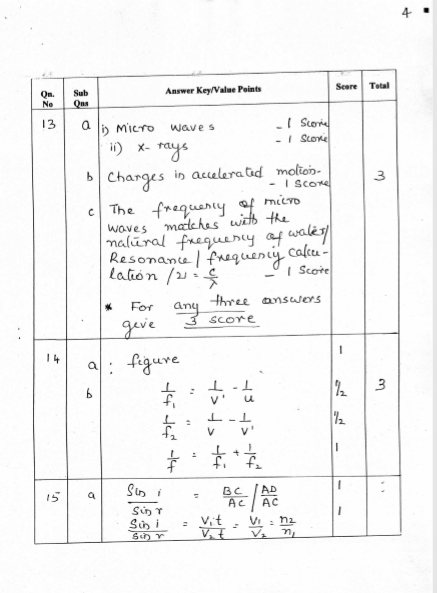 4
Qn. No Sub Qns Answer Key/Value Points Score Total
13 a i) Micro waves - 1 Score
ii) X-rays - 1 Score
b Charges in accelerated motion. - 1 Score 3
c The frequency of micro
waves matches with the
natural frequency of water/
Resonance/frequency calcu-
lation /ν = c/λ - 1 Score
* For any three answers
give 3 score
14 a : figure 1
b 1/f₁ = 1/v' - 1/u ½ 3
1/f₂ = 1/v - 1/v' ½
1/f = 1/f₁ + 1/f₂ 1
15 a Sin i / Sin r = BC/AC / AD/AC 1
Sin i / Sin r = V₁t / V₂t = V₁/V₂ = n₂/n₁ 1